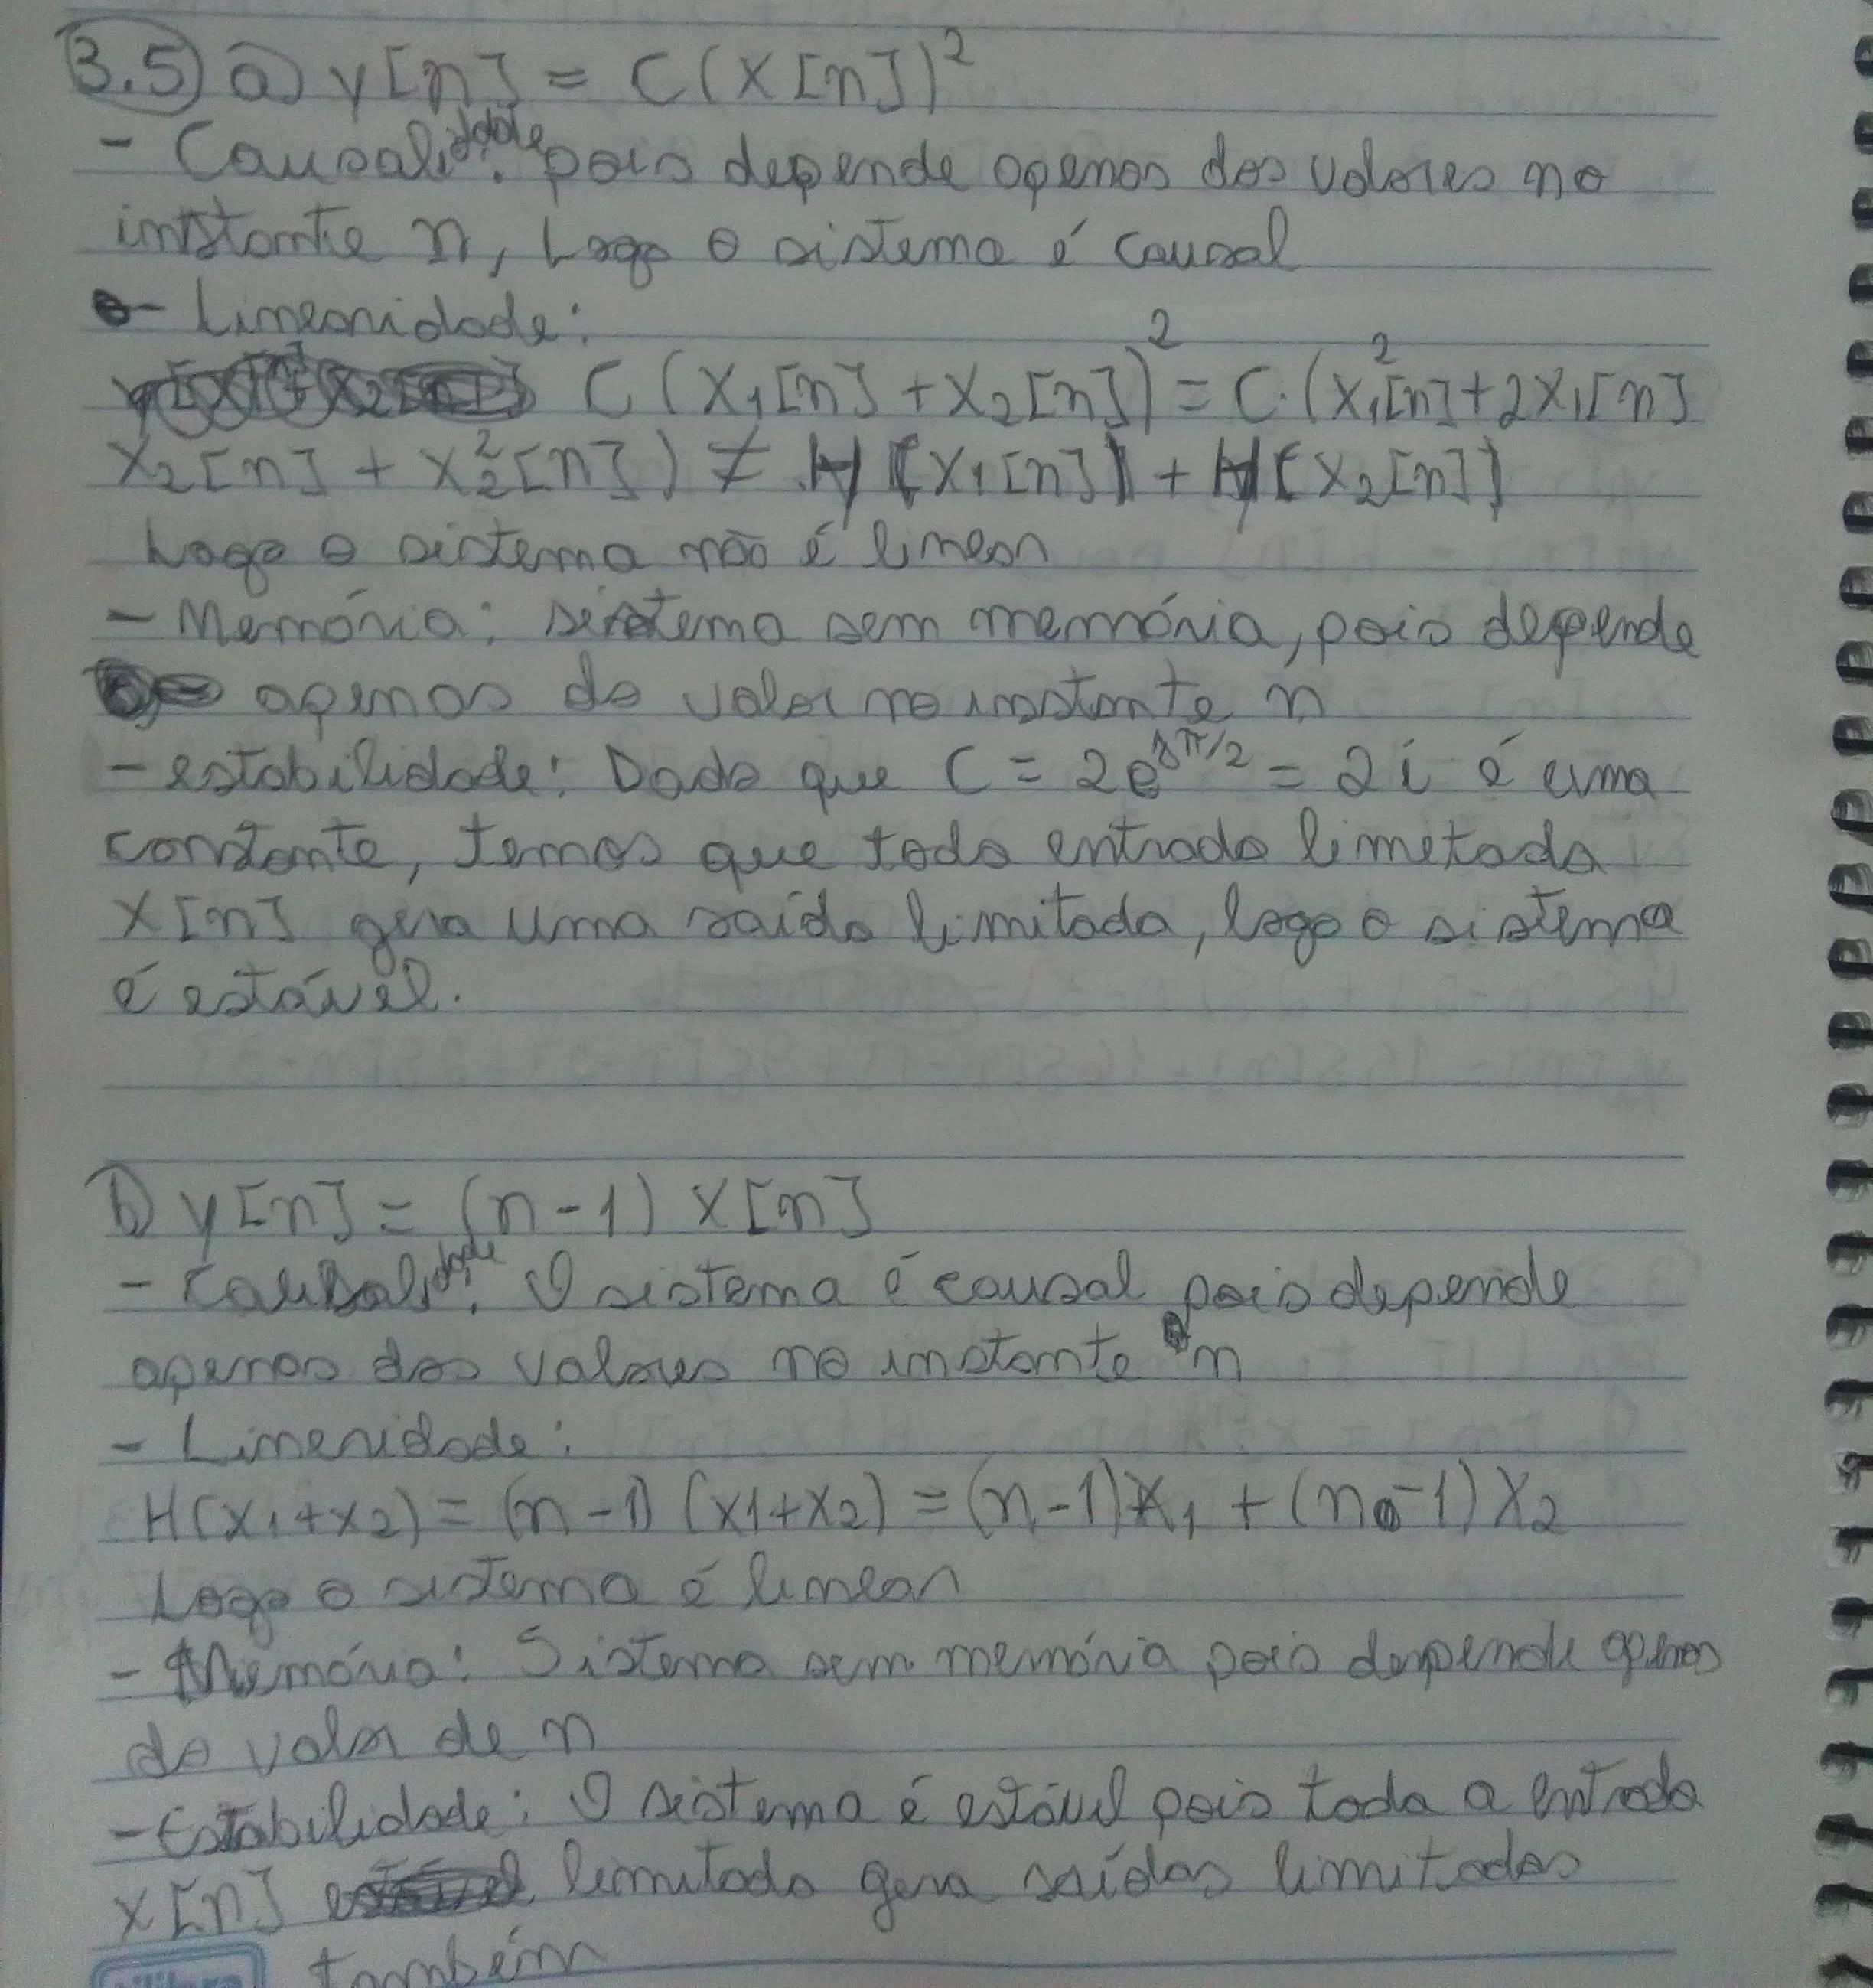 3.5) a) y[n] = C(X[n])²
- Causalidade: pois depende apenas dos valores no
instante n, Logo o sistema é causal
- Linearidade:
C(X₁[n] + X₂[n])² = C.(X₁²[n] + 2X₁[n]
X₂[n] + X₂²[n]) ≠ H[X₁[n]] + H[X₂[n]]
Logo o sistema não é linear
- Memória: sistema sem memória, pois depende
apenas do valor no instante n
- estabilidade: Dado que C = 2e^jπ/2 = 2i é uma
constante, temos que toda entrada limetada
X[n] gera uma saída limitada, logo o sistema
é estável.
b) y[n] = (n-1) X[n]
- Causalidade: O sistema é causal pois depende
apenas dos valores no instante n
- Lineridade:
H(X₁+X₂) = (n-1) (X1+X2) = (n-1)X₁ + (n-1)X₂
Logo o sistema é linear
- Memória: Sistema sem memória pois depende apenas
do valor de n
- Estabilidade: O sistema é estável pois toda a entrada
X[n] limitada gera saídas limitadas
também